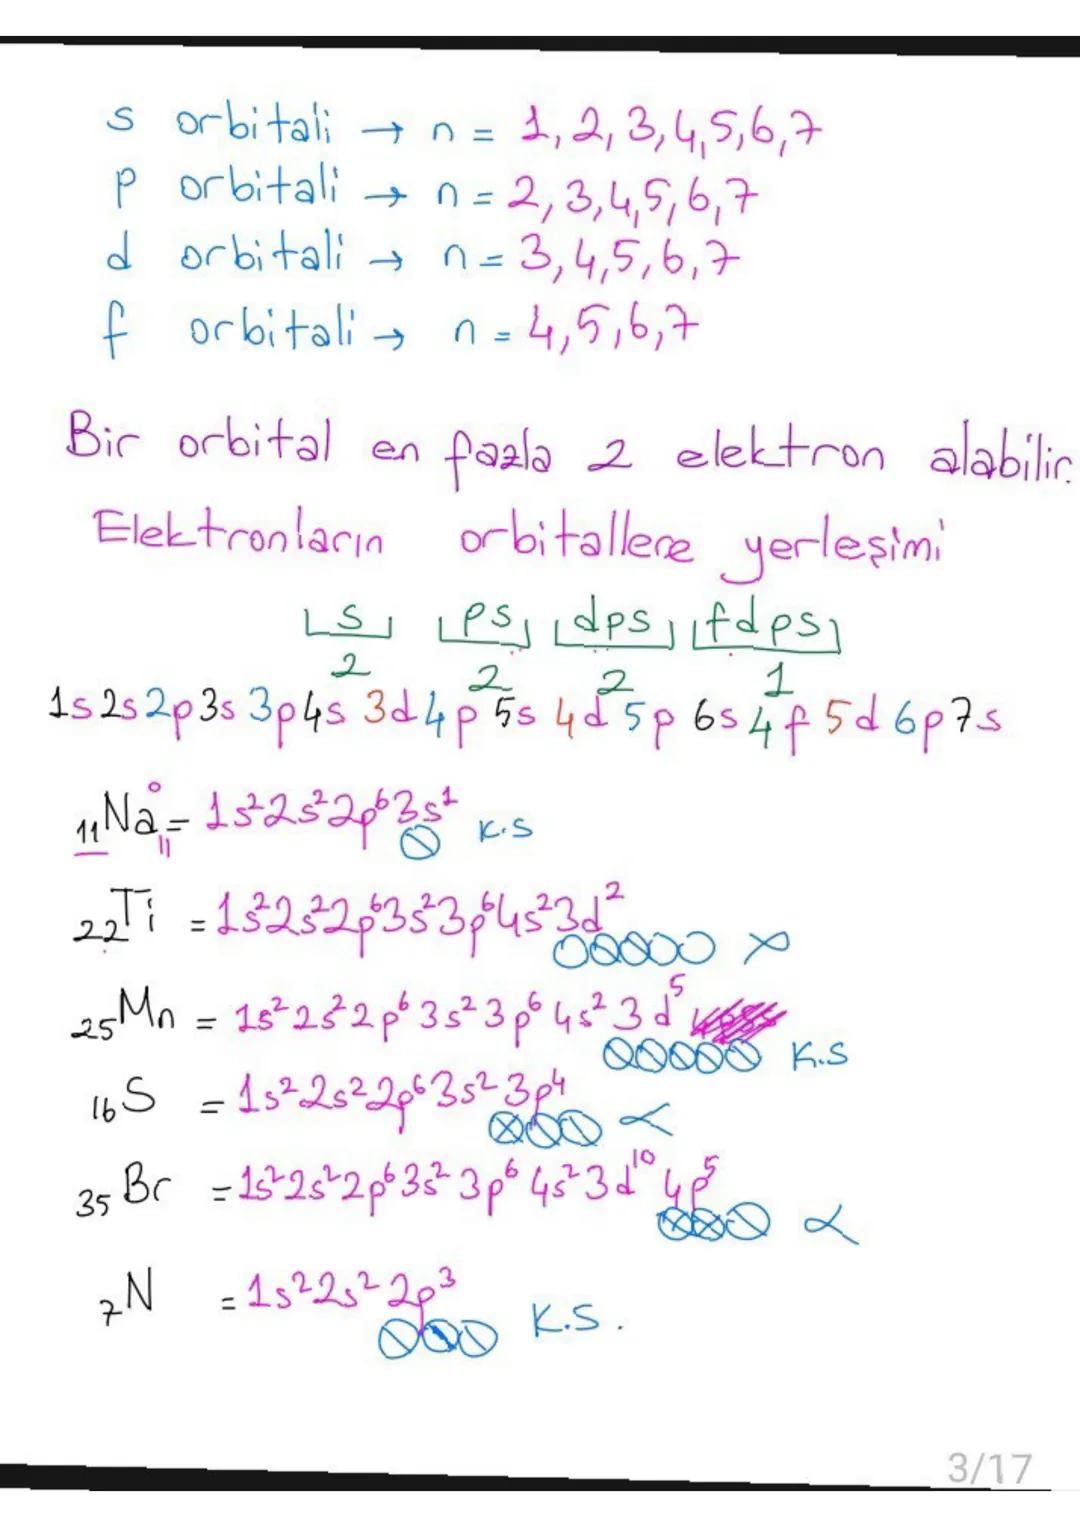 s orbitali → n = 1, 2, 3, 4, 5, 6, 7
p orbitali → n = 2, 3, 4, 5, 6, 7
d orbitali → n = 3, 4, 5, 6, 7
f orbitali → n = 4, 5, 6, 7
Bir orbital en fazla 2 elektron alabilir.
Elektronların orbitallere yerleşimi
s ps dps fdps
2 2 2 1
1s 2s 2p 3s 3p 4s 3d 4p 5s 4d 5p 6s 4f 5d 6p 7s
₁₁Na⁰₁₁ = 1s² 2s² 2p⁶ 3s¹
K.S
₂₂Ti = 1s² 2s² 2p⁶ 3s² 3p⁶ 4s² 3d²
₂₅Mn = 1s² 2s² 2p⁶ 3s² 3p⁶ 4s² 3d⁵
K.S
₁₆S = 1s² 2s² 2p⁶ 3s² 3p⁴
₃₅Br = 1s² 2s² 2p⁶ 3s² 3p⁶ 4s² 3d¹⁰ 4p⁵
₇N = 1s² 2s² 2p³
K.S.
3/17